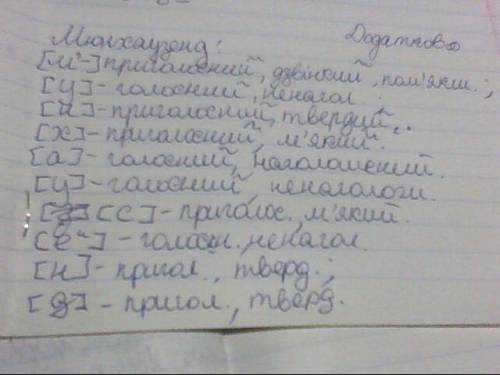 Мюнхаузенд: Додатково
[м'-] приголосний, дзвінкий, пом'якш.;
[у] - голосний, ненагол.;
[н] - приголосний, твердий..
[х] - приголосний, м'який.
[а] - голосний, наголошений.
[у] - голосний, ненаголош.
[с] - приголос., м'який.
[е"] - голосн. ненагол.
[н] - пригол., тверд.;
[д] - пригол., тверд.